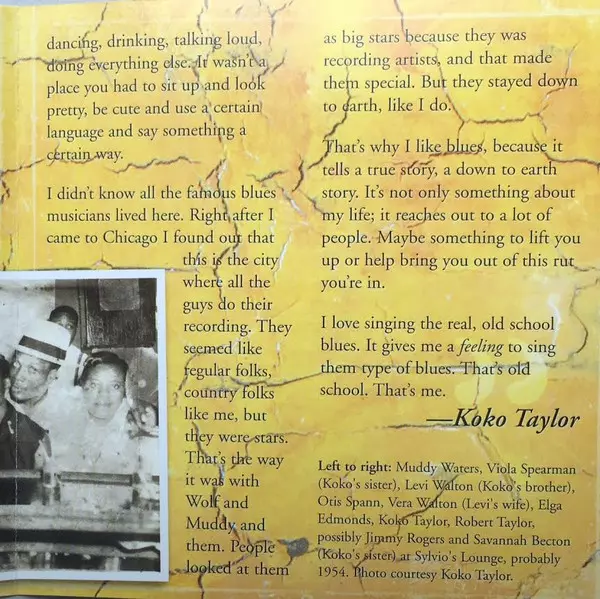 dancing, drinking, talking loud,
doing everything else. It wasn't a
place you had to sit up and look
pretty, be cute and use a certain
language and say something a
certain way.
I didn't know all the famous blues
musicians lived here. Right after I
came to Chicago I found out that
this is the city
where all the
guys do their
recording. They
seemed like
regular folks,
country folks
like me, but
they were stars.
That's the way
it was with
Wolf and
Muddy and
them. People
looked at them
as big stars because they was
recording artists, and that made
them special. But they stayed down
to earth, like I do.
That's why I like blues, because it
tells a true story, a down to earth
story. It's not only something about
my life; it reaches out to a lot of
people. Maybe something to lift you
up or help bring you out of this rut
you're in.
I love singing the real, old school
blues. It gives me a feeling to sing
them type of blues. That's old
school. That's me.
—Koko Taylor
Left to right: Muddy Waters, Viola Spearman
(Koko's sister), Levi Walton (Koko's brother),
Otis Spann, Vera Walton (Levi's wife), Elga
Edmonds, Koko Taylor, Robert Taylor,
possibly Jimmy Rogers and Savannah Becton
(Koko's sister) at Sylvio's Lounge, probably
1954. Photo courtesy Koko Taylor.